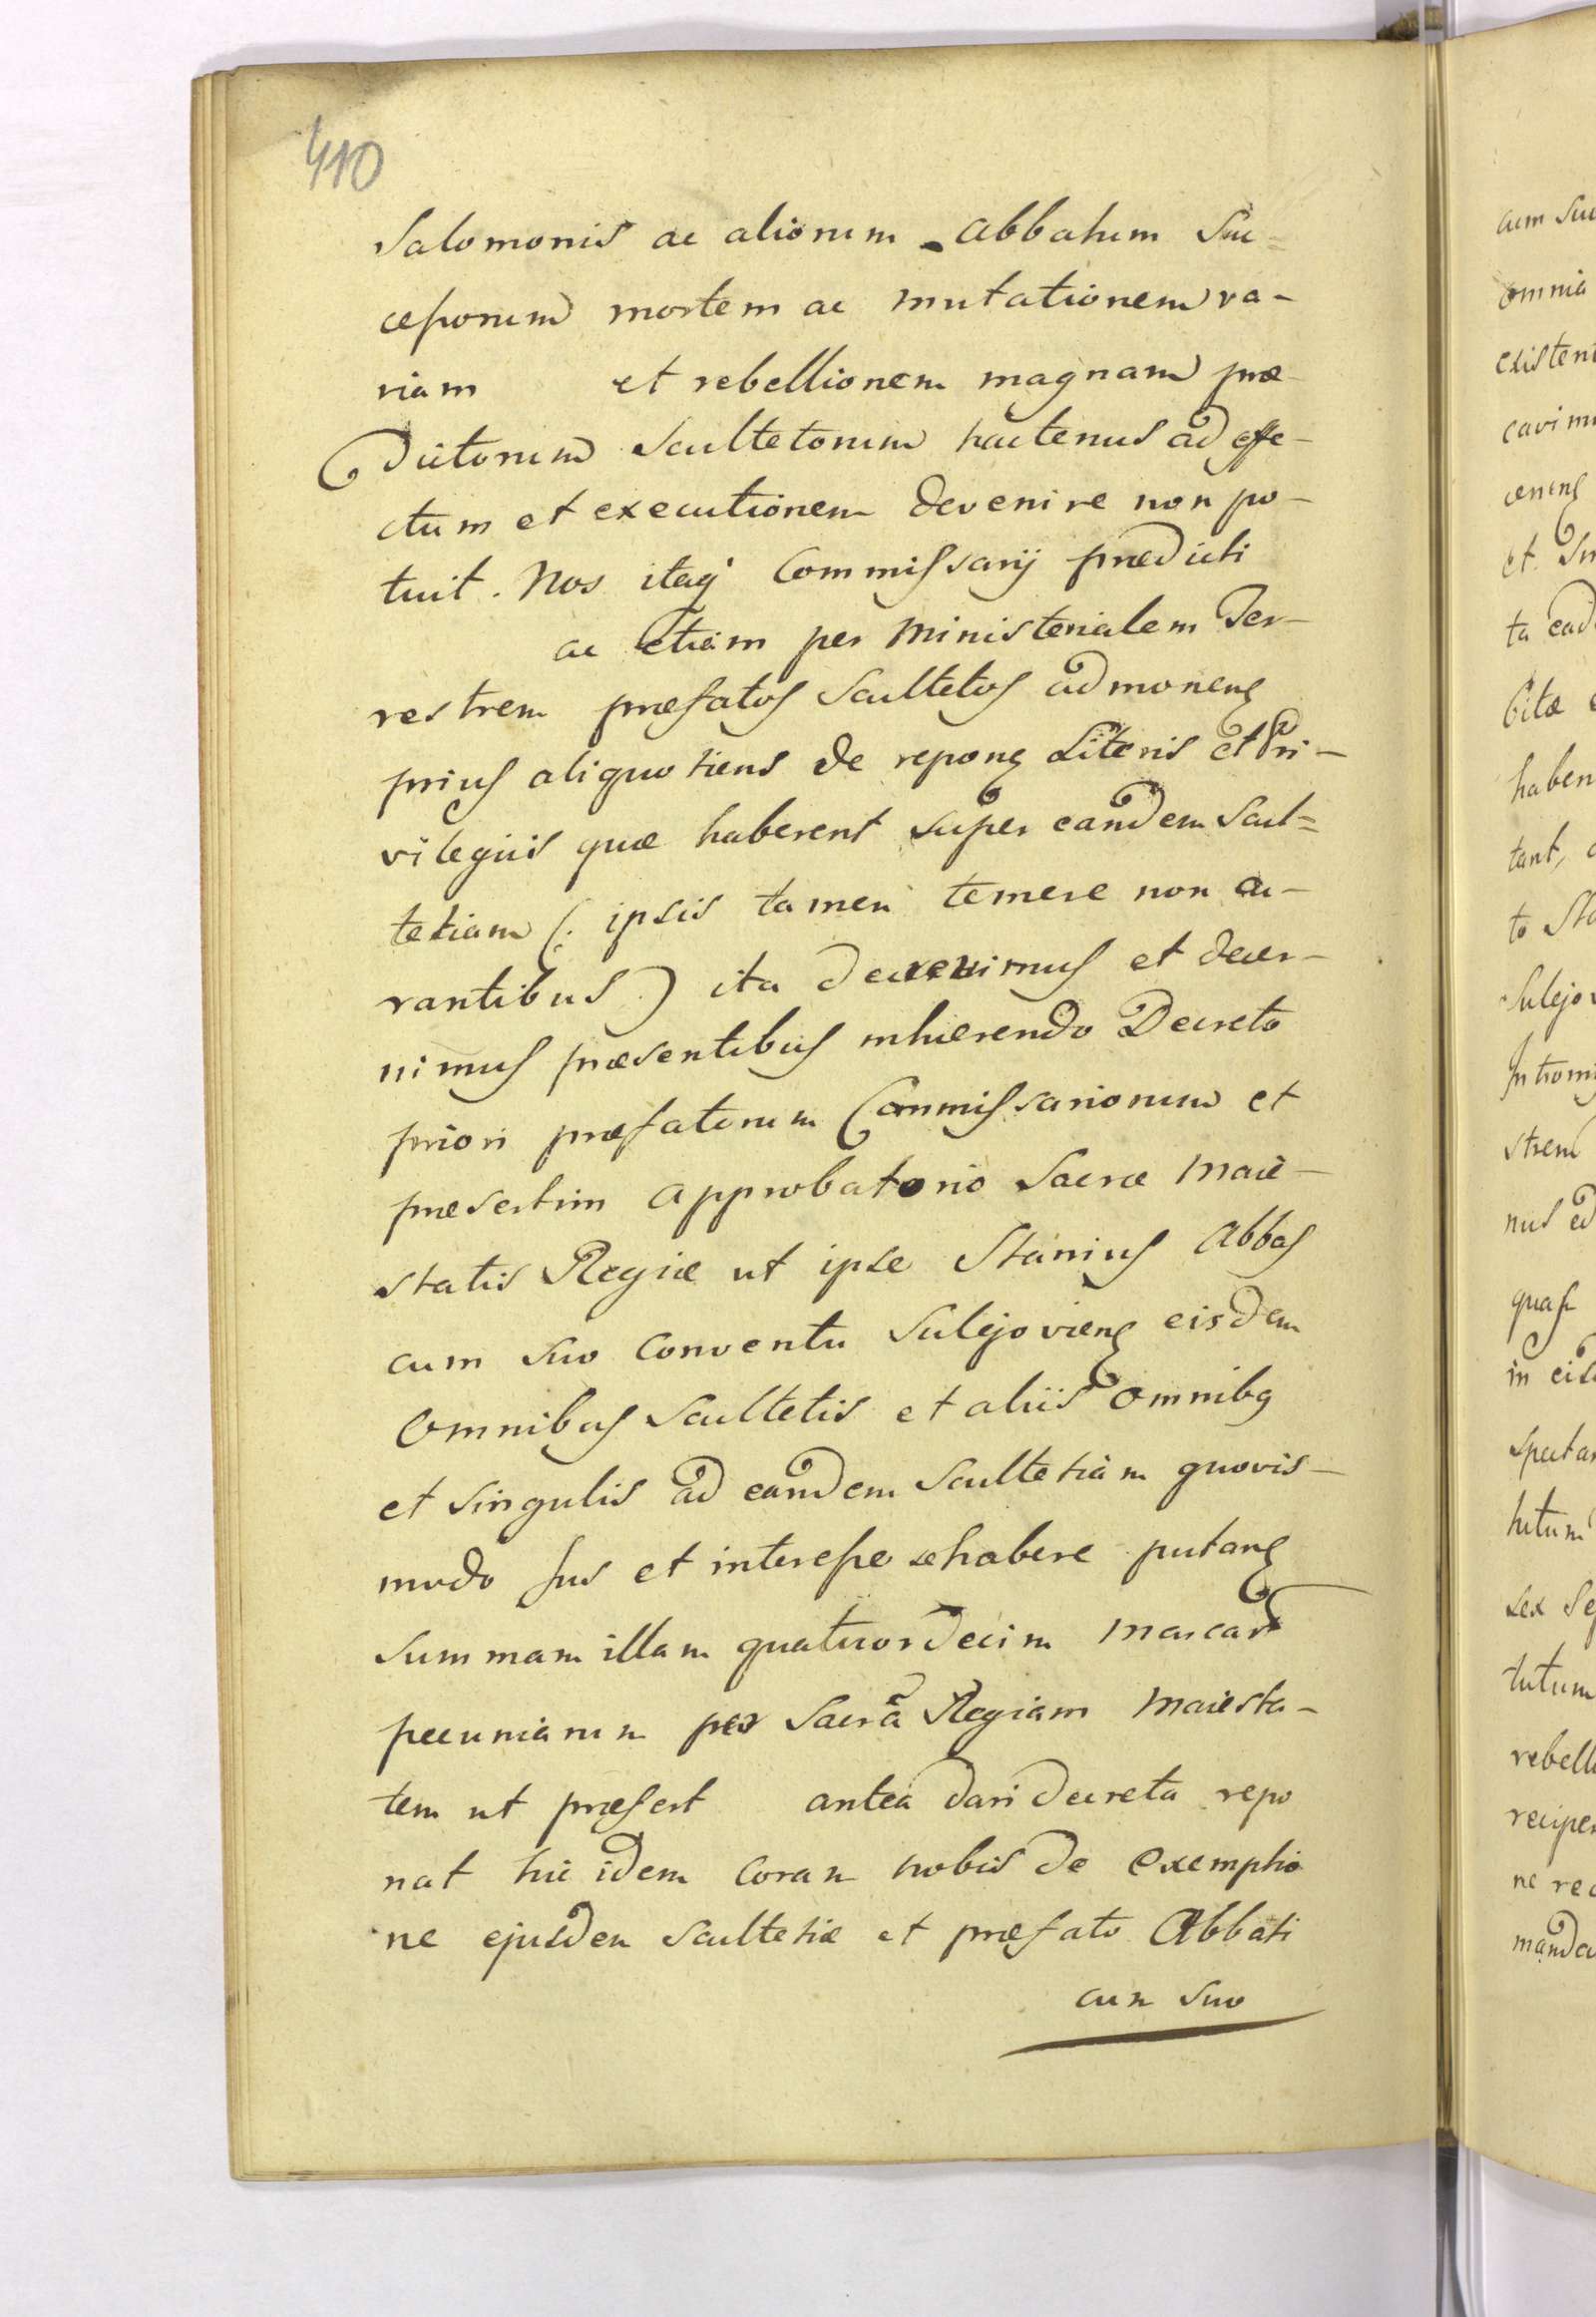 410
Salomonis ac aliorum Abbatum Suc=
cessorum mortem ac mutationem va-
riam et rebellionem magnam præ
dictorum Scultetorum hactenus ad effe-
ctum et executionem devenire non po-
tuit. Nos itaq' Commissarij prædicti
ac etiam per Ministerialem Ter-
restrem præfatos Scultetos admonens
prius aliquotiens de repong Literis et Pri-
vilegiis quæ haberent super eandem Scul=
tetiam (: ipsis tamen temere non cu-
rantibus :) ita decrevimus et decer-
nimus præsentibus inhærendo Decreto
priori præfatorum Commissariorum et
præsertim Approbatorio Sacræ Maie-
statis Regiæ ut ipse Stanius Abbas
cum suo Conventu Sulejoviens eisdem
Omnibus Scultetis et aliis omnibq
et singulis ad eandem Scultetiam quovis-
modo Jus et interesse se habere putang
Summam illam quatuordecim marcar
pecuniarum per Sacrã Regiam Maiesta-
tem ut præfert antea dari decreta repo
nat hic idem coram nobis de exemptio
ne ejusdem Scultetiæ et præfato Abbati
cum suo
cum Suo
omnia
existent
et Su
haben
tant,
to Sta
Sulejov
strem
in eis
tutum
rebell
recipe
ne rec
manda